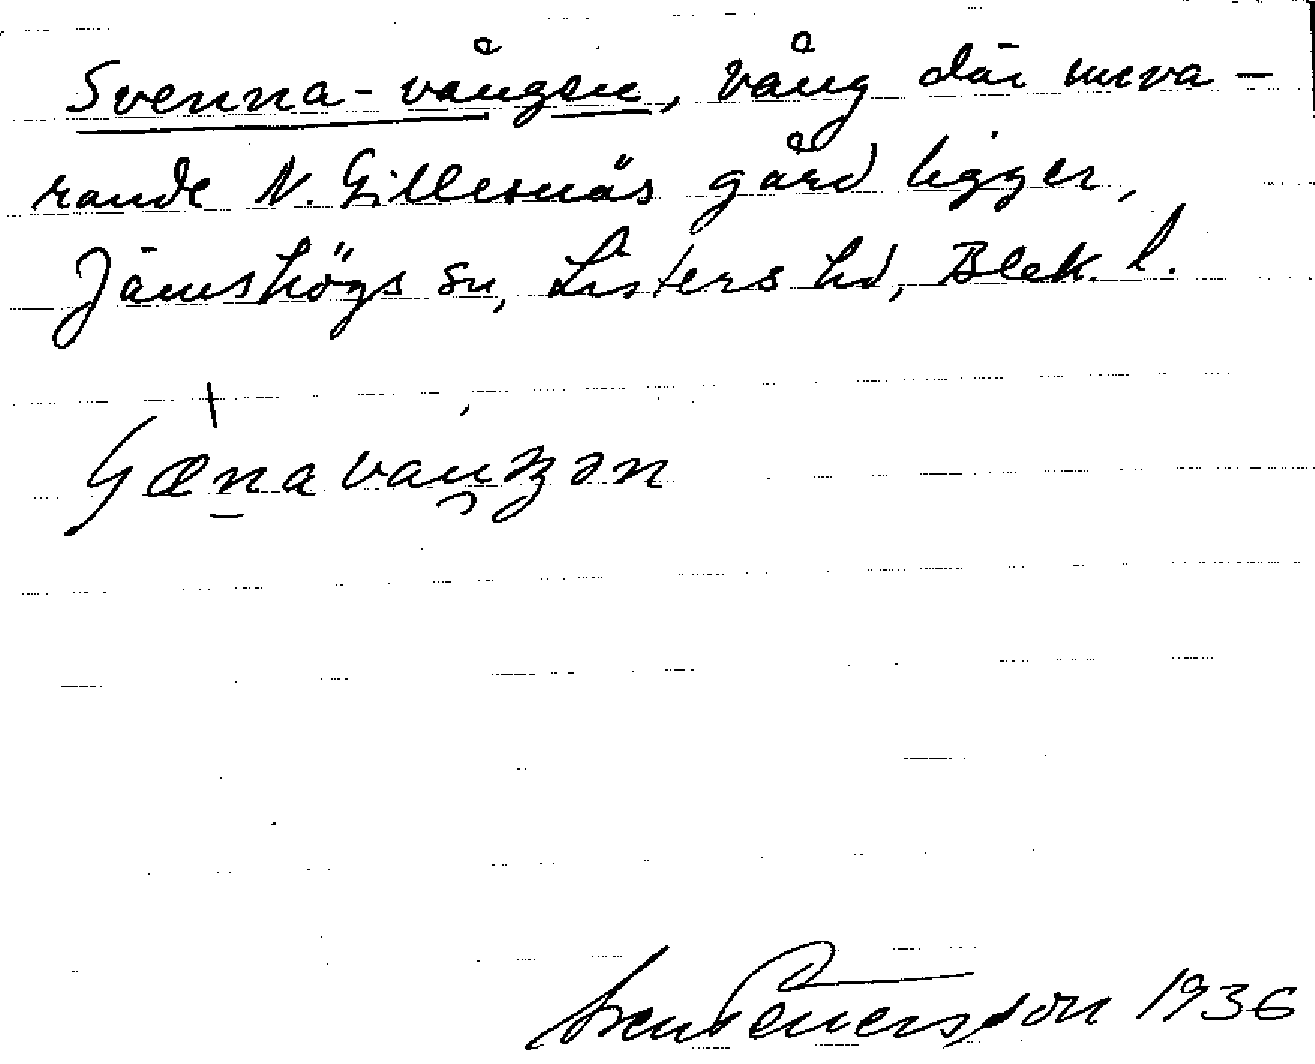 Svenna-vången, vång där nuva-
rande N. Gillesnäs gård ligger,
Jämshögs sn, Listers hd, Blek. l.
Sven Petersson 1936